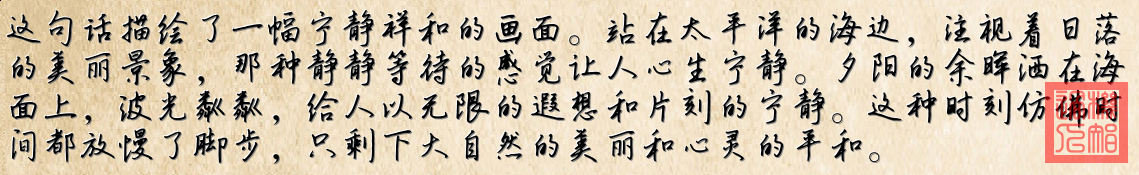 这句话描绘了一幅宁静祥和的画面。站在太平洋的海边，注视着日落
的美丽景象，那种静静等待的感觉让人心生宁静。夕阳的余晖洒在海
面上，波光粼粼，给人以无限的遐想和片刻的宁静。这种时刻仿佛时
间都放慢了脚步，只剩下大自然的美丽和心灵的平和。